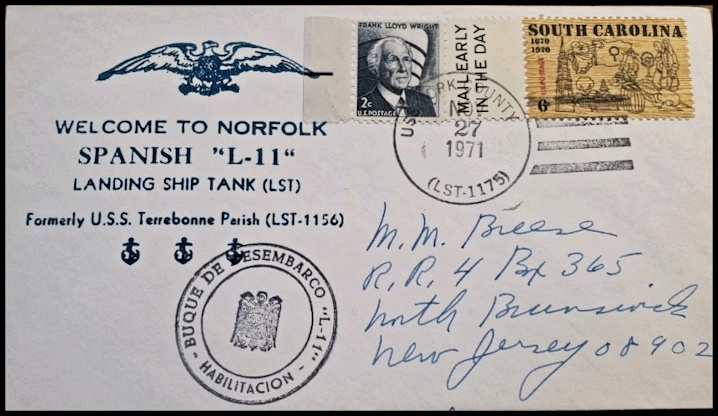 WELCOME TO NORFOLK
SPANISH "L-11"
LANDING SHIP TANK (LST)
Formerly U.S.S. Terrebonne Parish (LST-1156)
BUQUE DE DESEMBARCO "L-11"
- HABILITACION -
FRANK LLOYD WRIGHT
2c
U.S. POSTAGE
MAIL EARLY
IN THE DAY
SOUTH CAROLINA
1670
1970
6c
COUNTY
27
1971
(LST-1175)
M. M. Breese
R. R. 4 Bx 365
North Brunswick
New Jersey 08902